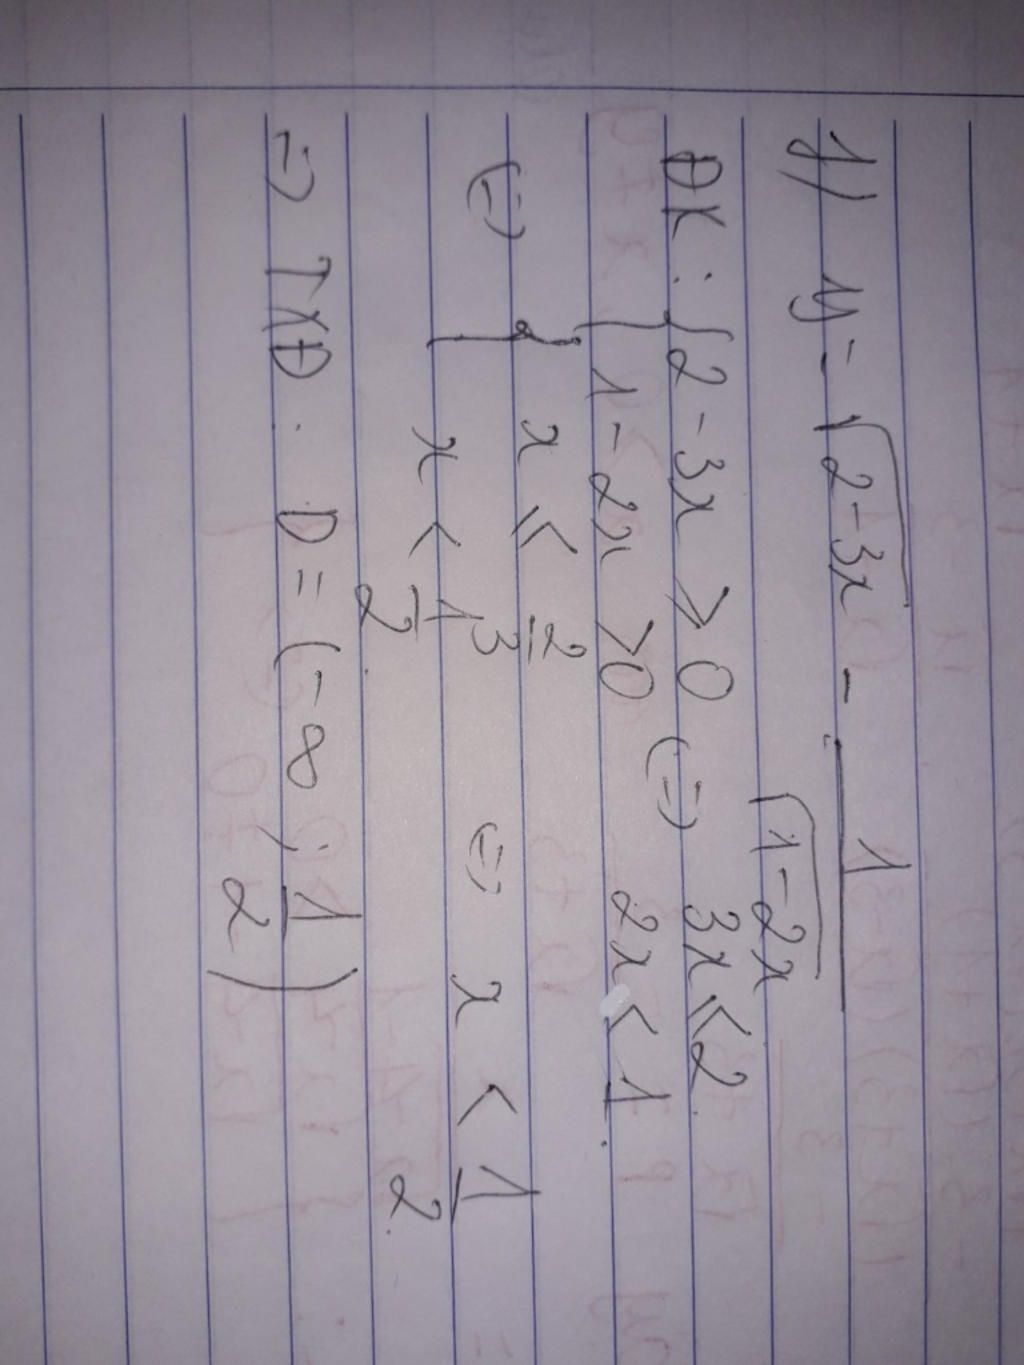 f) y = √(2-3x) - 1/√(1-2x)
ĐK: { 2-3x ⩾ 0 (=) 3x ⩽ 2
{ 1-2x > 0 2x < 1.
(=) { x ⩽ 2/3
{ x < 1/2. (=) x < 1/2.
=> TXĐ. D = (-∞; 1/2)